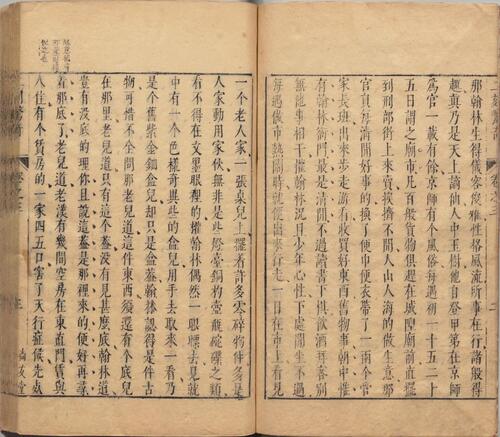 那翰林生得儀容俊雅性格風流所事在行諸般得
趣真乃是天上謫仙人中玉樹他自登甲第在京師
爲官一載有餘京師有個風俗每遇初一十五二十
五日謂之廟市凡百般貨物俱趕在城隍廟前直擺
到刑部街上來賣挨擠不開人山人海的做生意那
官員每清閒好事的換了便巾便衣帶了一兩个管
家長班出來步走游看收買好東西舊物事朝中惟
有翰林衙門最是清閒不過讀書下棋飲酒拜客別
無他事相干權翰林況且少年心性下處閒坐不過
每遇做市熱鬧時就便出來行走一日在市上看見
一个老人家一張桌兒上擺着許多零碎物件多是
人家動用家伙無非是些燈臺銅杓壺瓶碗碟之類
看不得在文墨眼裡的權翰林偶然一眼瞟去見就
中有一个色樣奇異些的盒兒用手去取來一看乃
是个舊紫金鈿盒兒却只是盒蓋翰林認得是件古
物可惜不全問那老兒道這件東西須還有個底兒
在那里老兒道只有這個蓋沒有見甚麼底翰林道
豈有沒底的理你且說這蓋是那裡來的便好再尋
着那底了老兒道老漢有幾間空房在東直門賃與
人住有个賃房的一家四五口害了天行症候先死